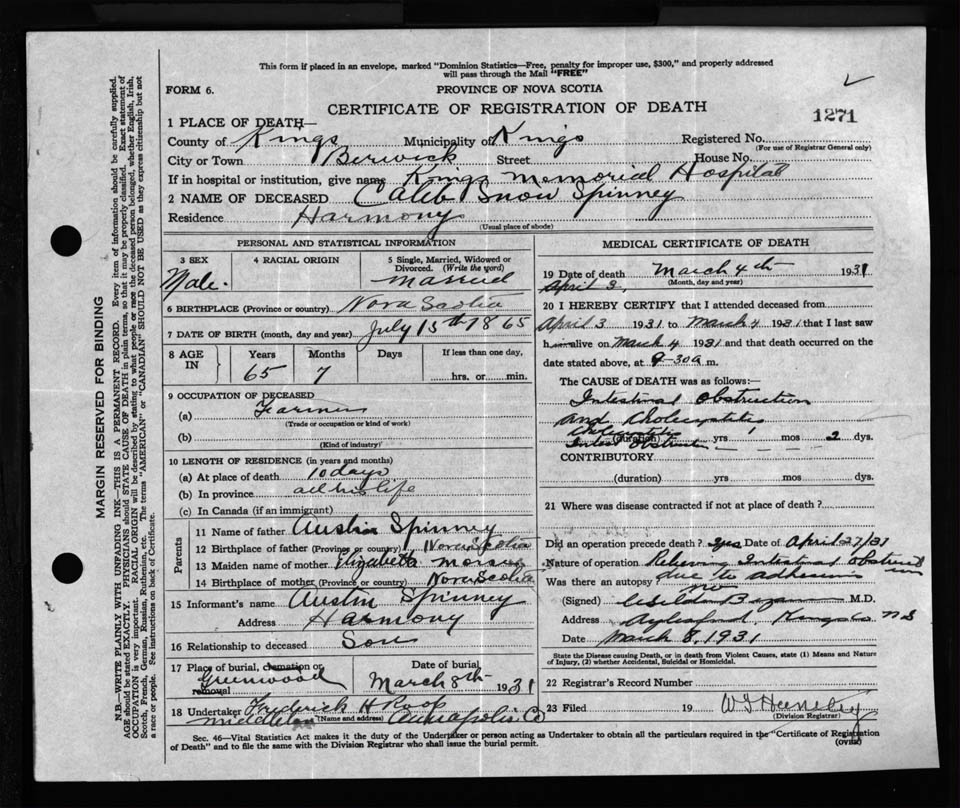 This form if placed in an envelope, marked "Dominion Statistics—Free, penalty for improper use, $300," and properly addressed
will pass through the Mail "FREE"
FORM 6.
PROVINCE OF NOVA SCOTIA
CERTIFICATE OF REGISTRATION OF DEATH
1271
1 PLACE OF DEATH—
County of Kings Municipality of Kings Registered No.
(For use of Registrar General only)
City or Town Berwick Street House No.
If in hospital or institution, give name Kings Memorial Hospital
2 NAME OF DECEASED Caleb Snow Spinney
Residence Harmony
(Usual place of abode)
PERSONAL AND STATISTICAL INFORMATION
3 SEX 4 RACIAL ORIGIN 5 Single, Married, Widowed or
Divorced. (Write the word)
Male. Married
6 BIRTHPLACE (Province or country) Nova Scotia
7 DATE OF BIRTH (month, day and year) July 15th 1865
8 AGE IN Years Months Days If less than one day,
65 7 hrs. or min.
9 OCCUPATION OF DECEASED
(a) Farmer
(Trade or occupation or kind of work)
(b)
(Kind of industry)
10 LENGTH OF RESIDENCE (in years and months)
(a) At place of death 10 days
(b) In province all his life
(c) In Canada (if an immigrant)
Parents
11 Name of father Austin Spinney
12 Birthplace of father (Province or country) Nova Scotia
13 Maiden name of mother Elizabeth
14 Birthplace of mother (Province or country) Nova Scotia
15 Informant's name Austin Spinney
Address Harmony
16 Relationship to deceased Son
17 Place of burial, cremation or
removal Greenwood
Date of burial
March 8th 1931
18 Undertaker Frederick H Roop
Middleton (Name and address) Annapolis Co
MEDICAL CERTIFICATE OF DEATH
19 Date of death March 4th 1931
(Month, day and year)
April 3,
20 I HEREBY CERTIFY that I attended deceased from
April 3 1931 to March 4 1931 that I last saw
him alive on March 4 1931 and that death occurred on the
date stated above, at 9-30 a m.
The CAUSE of DEATH was as follows:—
Intestinal Obstruction
and
(duration) yrs mos 2 dys.
CONTRIBUTORY
(duration) yrs mos dys.
21 Where was disease contracted if not at place of death?
Did an operation precede death? yes Date of April 27/31
Nature of operation Relieving Intestinal Obstruction
due to adhesions
Was there an autopsy no
(Signed) M.D.
Address Aylesford, Kings Co NS
Date March 8, 1931
State the Disease causing Death, or in death from Violent Causes, state (1) Means and Nature
of Injury, (2) whether Accidental, Suicidal or Homicidal.
22 Registrar's Record Number
23 Filed 19
(Division Registrar)
Sec. 46—Vital Statistics Act makes it the duty of the Undertaker or person acting as Undertaker to obtain all the particulars required in the "Certificate of Registration
of Death" and to file the same with the Division Registrar who shall issue the burial permit.
(OVER)
MARGIN RESERVED FOR BINDING
N.B.—WRITE PLAINLY WITH UNFADING INK—THIS IS A PERMANENT RECORD. Every item of information should be carefully supplied.
AGE should be stated EXACTLY. PHYSICIANS should STATE CAUSE OF DEATH in plain terms, so that it may be properly classified. Exact statement of
OCCUPATION is very important. RACIAL ORIGIN will be described by stating to what people or race the deceased person belonged, whether English, Irish,
Scotch, French, German, Russian, Ruthenian, etc. The terms "AMERICAN" or "CANADIAN" SHOULD NOT BE USED as they express citizenship but not
a race or people. See instructions on back of Certificate.